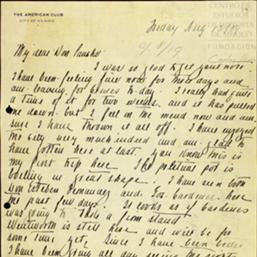 THE AMERICAN CLUB
CITY OF MEXICO
Friday Aug
9/8/19
My dear Don Pancho:
I was so glad to get your note
I have been feeling fine now for three days and
am leaving for to-day. I really had quite
a time of it for two weeks, and it has pulled
me down but I feel on the mend now and am
sure I have thrown it all off. I have enjoyed
the city very much indeed and am glad to
have gotten here at last. You know this is
my first trip here. The political pot is
boiling in great shape. I have seen both
the past few days. It looks as if Cardenas
was going to take a firm stand
Wentworth is still here and will be for
some time yet. Since I have been
I have been